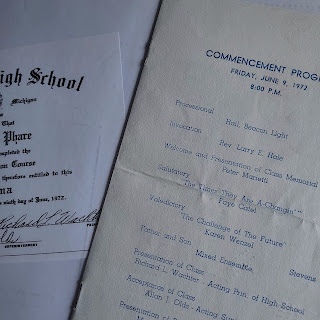 igh School
Michigan
That
Phare
ompleted the
on Course
therefore entitled to this
ma
sixth day of June, 1972.
Richard L. Wach
SUPERINTENDENT
COMMENCEMENT PROG
FRIDAY, JUNE 9, 1972
8:00 P.M.
Processional Hail, Beacon Light
Invocation Rev. Larry E. Hale
Welcome and Presentation of Class Memorial
Peter Marietti
Salutatory "The Times They Are A-Changin'"
Faye Catel
Valedictory "The Challenge of The Future"
Karen Wensel
Father and Son Mixed Ensemble Stevens
Presentation of Class
Richard L. Wachter - Acting Prin. of High School
Acceptance of Class
Allan J. Olde - Acting Super
Presentation of